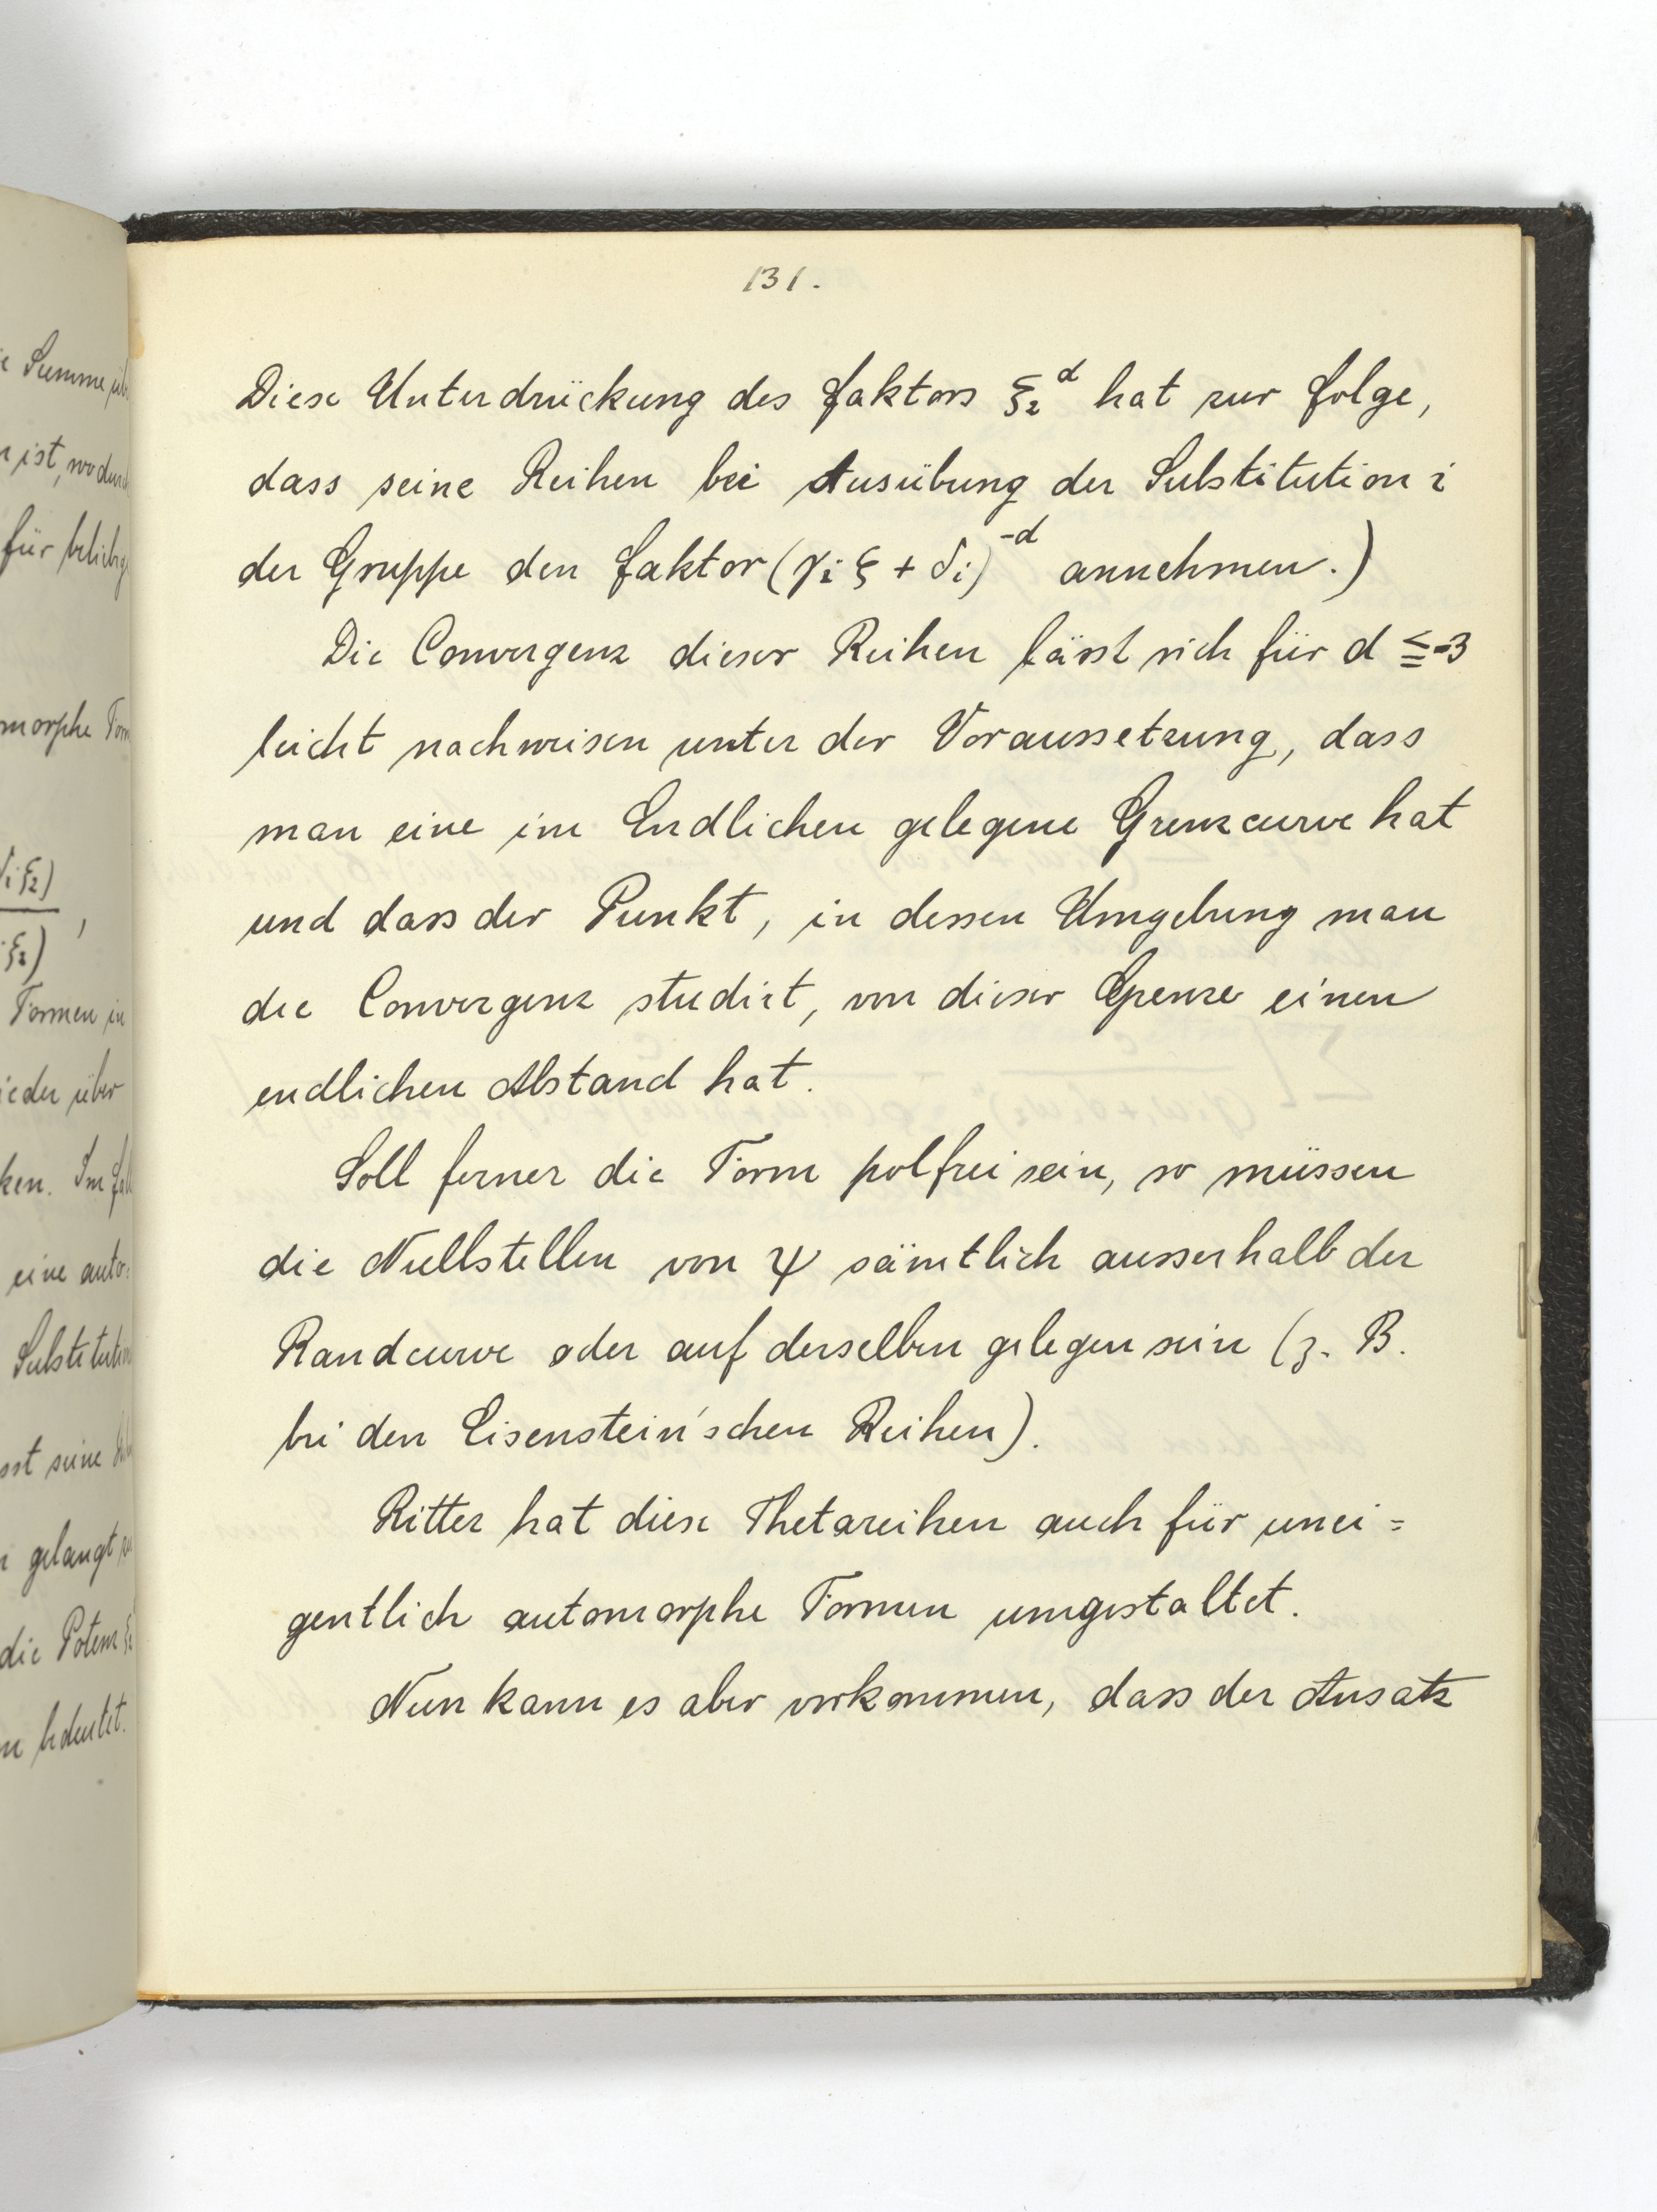 131.
Diese Unterdrückung des Faktors ξ₂^d hat zur Folge,
dass seine Reihen bei Ausübung der Substitution i
der Gruppe den Faktor (γᵢ ξ + δᵢ)^-d annehmen.)
Die Convergenz dieser Reihen lässt sich für d ≦ -3
leicht nachweisen unter der Voraussetzung, dass
man eine im Endlichen gelegene Grenzcurve hat
und dass der Punkt, in dessen Umgebung man
die Convergenz studirt, von dieser Grenze einen
endlichen Abstand hat.
Soll ferner die Form polfrei sein, so müssen
die Nullstellen von ψ sämtlich ausserhalb der
Randcurve oder auf derselben gelegen sein (z. B.
bei den Eisenstein'schen Reihen).
Ritter hat diese Thetareihen auch für unei=
gentlich automorphe Formen umgestaltet.
Nun kann es aber vorkommen, dass der Ansatz